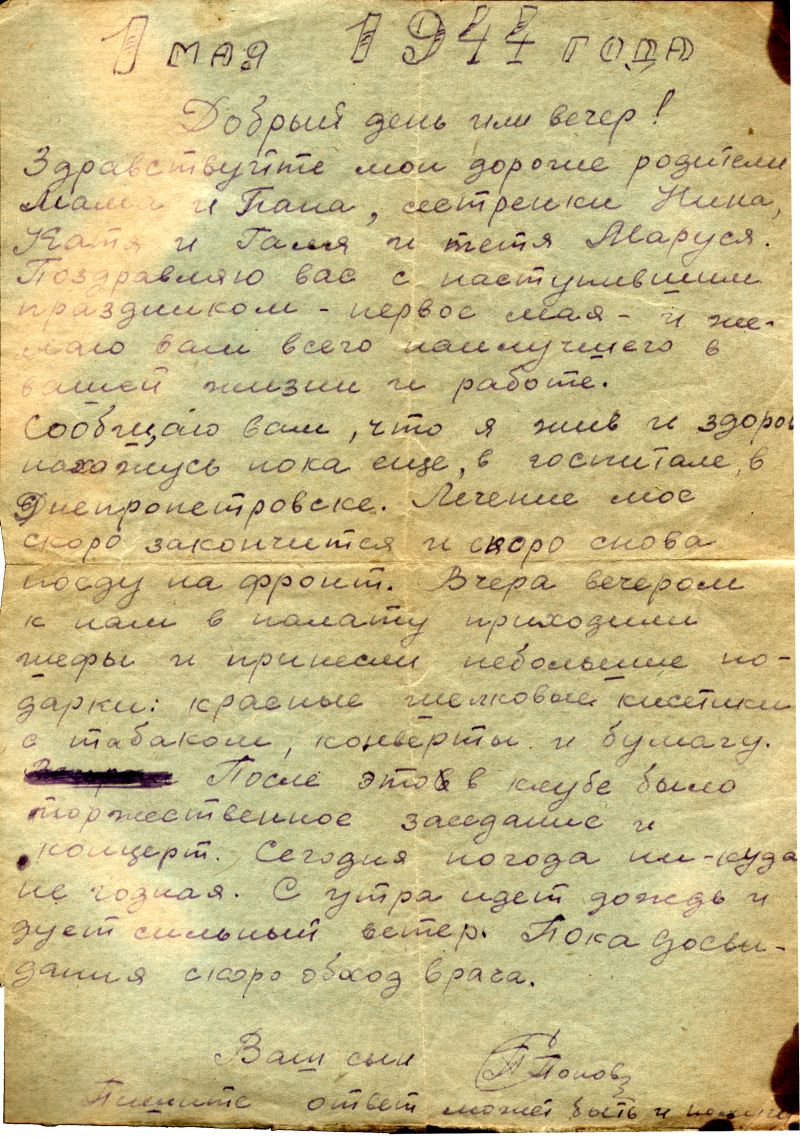 1 мая 1944 года
Добрый день или вечер!
Здравствуйте мои дорогие родители
Мама и Папа, сестренки Нина,
Катя и Галя и тетя Маруся.
Поздравляю вас с наступившим
праздником - первое мая - и же-
лаю вам всего наилучшего в
вашей жизни и работе.
Сообщаю вам, что я жив и здоров
нахожусь пока еще, в госпитале, в
Днепропетровске. Лечение мое
скоро закончится и скоро снова
поеду на фронт. Вчера вечером
к нам в палату приходили
шефы и принесли небольшие по-
дарки: красные шелковые кисетики
с табаком, конверты и бумагу.
После этого в клубе было
торжественное заседание и
концерт. Сегодня погода ни-куда
не годная. С утра идет дождь и
дует сильный ветер. Пока досви-
дания скоро обход врача.
Ваш сын Попов
Пишите ответ может быть и